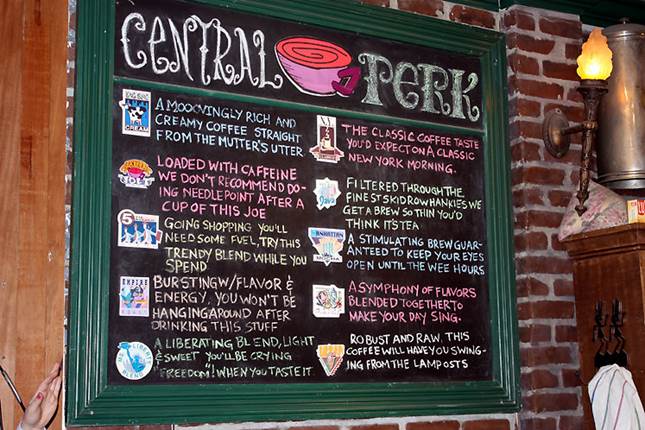 CENTRAL PERK
BIG BUCK
CREAM
A MOOOVINGLY RICH AND
CREAMY COFFEE STRAIGHT
FROM THE MUTTER'S UTTER.
JOE
LOADED WITH CAFFEINE
WE DON'T RECOMMEND DO-
ING NEEDLEPOINT AFTER A
CUP OF THIS JOE
5
GOING SHOPPING YOU'LL
NEED SOME FUEL, TRY THIS
TRENDY BLEND WHILE YOU
SPEND
EMPIRE
ROAST
BURSTING W/FLAVOR &
ENERGY, YOU WON'T BE
HANGING AROUND AFTER
DRINKING THIS STUFF
MS. LIBERTY
BLEND
A LIBERATING BLEND, LIGHT
& SWEET YOU'LL BE CRYING
"FREEDOM"! WHEN YOU TASTE IT
THE CLASSIC COFFEE TASTE
YOU'D EXPECT ON A CLASSIC
NEW YORK MORNING.
Java
FILTERED THROUGH THE
FINEST SKIDROW HANKIES WE
GET A BREW SO THIN YOU'D
THINK IT'S TEA
MANHATTAN
A STIMULATING BREW GUAR-
ANTEED TO KEEP YOUR EYES
OPEN UNTIL THE WEE HOURS
A SYMPHONY OF FLAVORS
BLENDED TOGETHER TO
MAKE YOUR DAY SING.
ROBUST AND RAW. THIS
COFFEE WILL HAVE YOU SWING-
ING FROM THE LAMP POSTS